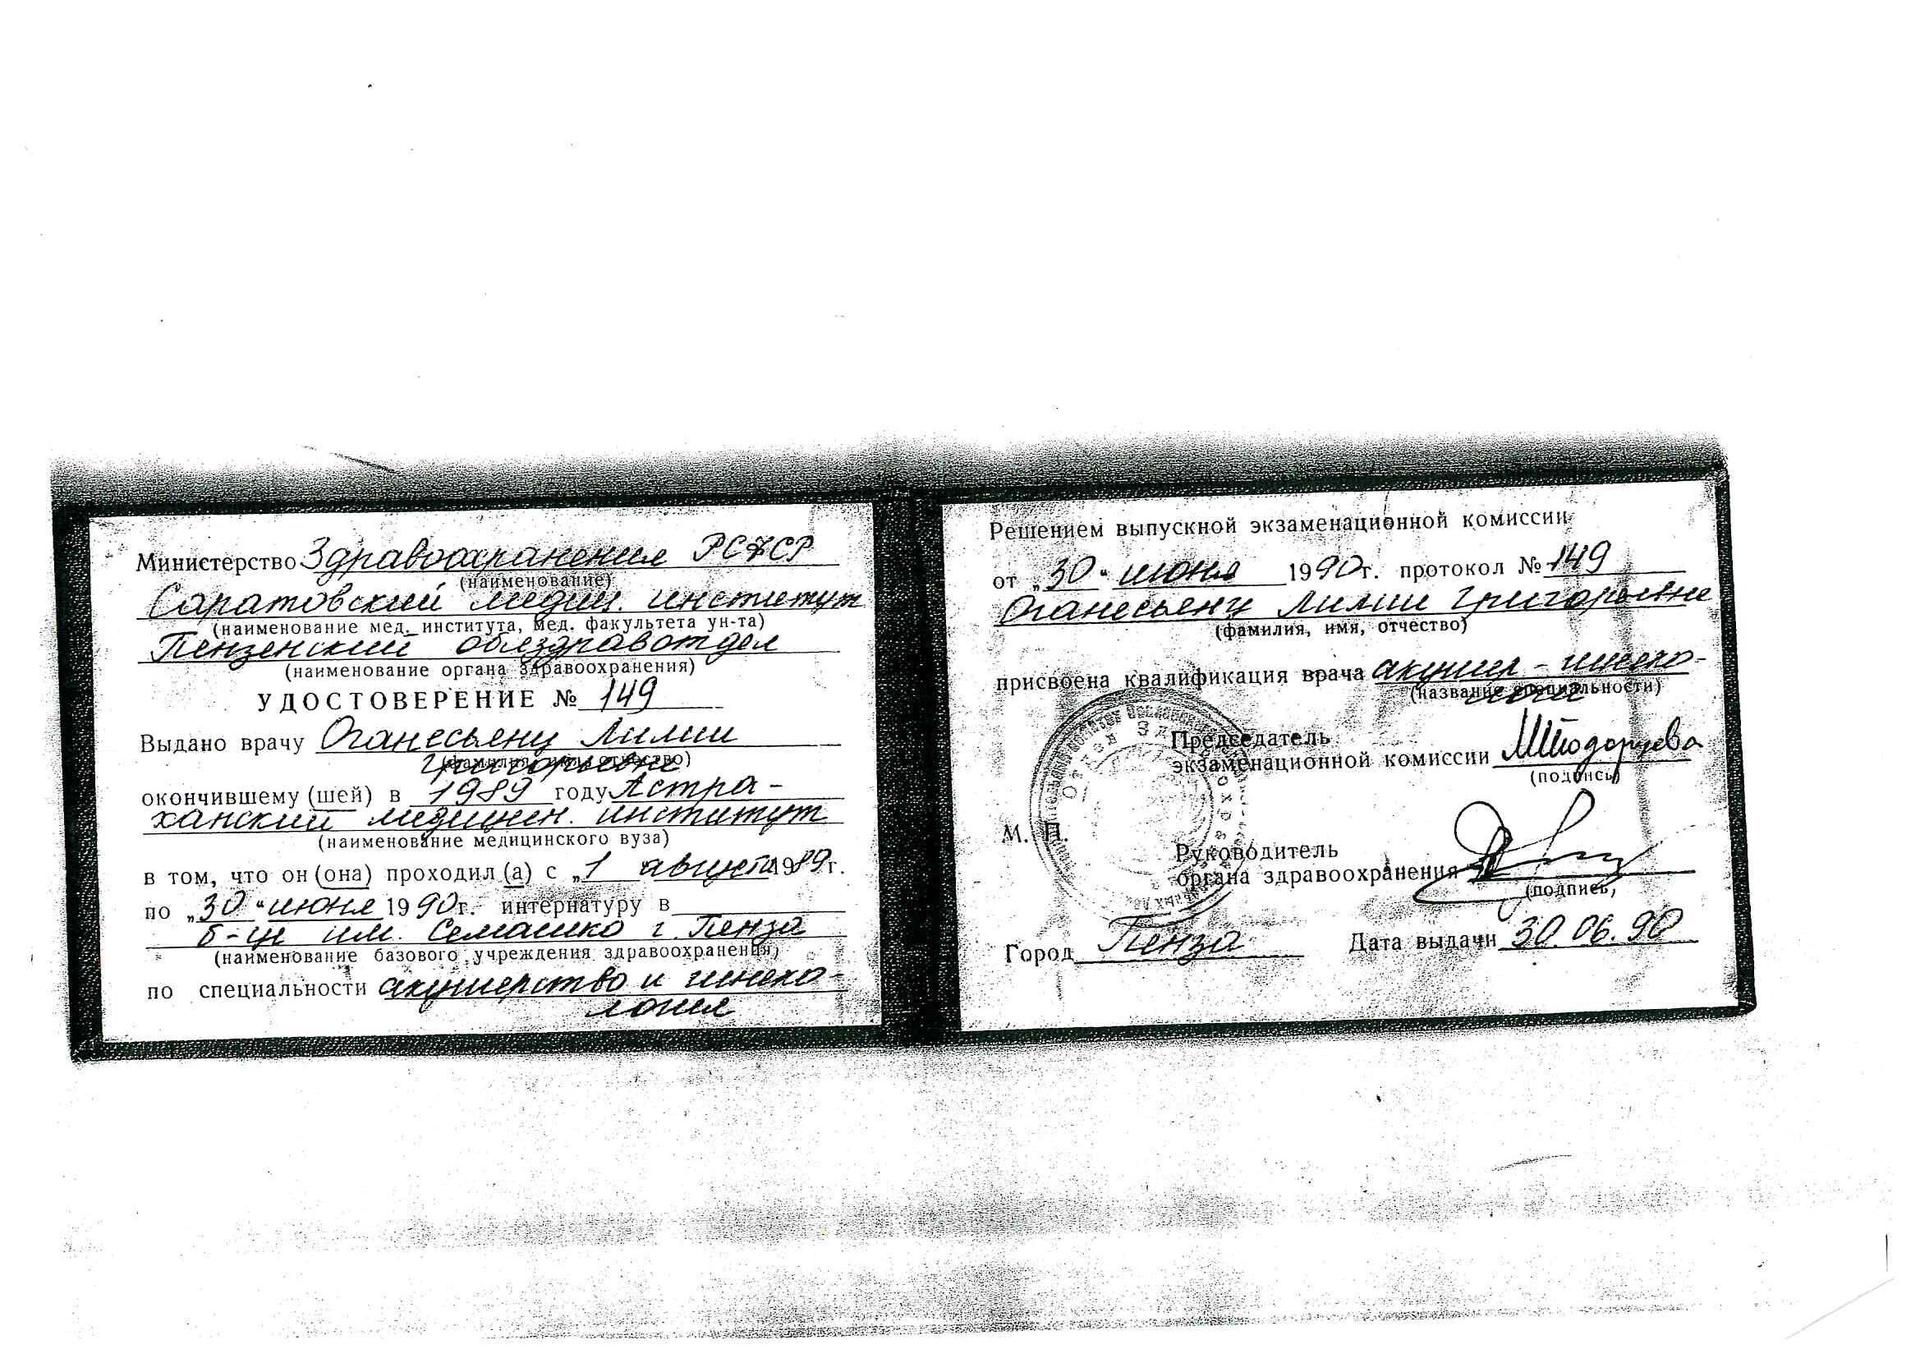 Министерство Здравоохранения РСФСР
(наименование)
Саратовский медиц. институт
(наименование мед. института, мед. факультета ун-та)
Пензенский облздравотдел
(наименование органа здравоохранения)
УДОСТОВЕРЕНИЕ № 149
Выдано врачу Оганесьянц Лилии
Григорьевне
(фамилия, имя, отчество)
окончившему (шей) в 1989 году Астра-
ханский медицин. институт
(наименование медицинского вуза)
в том, что он (она) проходил (а) с „1 августа 1989г.
по „30 “ июня 1990г. интернатуру в
б-це им. Семашко г. Пенза
(наименование базового учреждения здравоохранения)
по специальности акушерство и гинеко-
логия
Решением выпускной экзаменационной комиссии
от „30 “ июня 1990г. протокол № 149
Оганесьянц Лилии Григорьевне
(фамилия, имя, отчество)
присвоена квалификация врача акушер - гинеко-
лога
(название специальности)
Председатель
экзаменационной комиссии
(подпись)
М. П.
Руководитель
органа здравоохранения
(подпись)
Город Пенза Дата выдачи 30.06.90